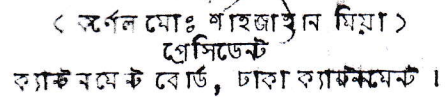 ( কর্ণেল মোঃ শাহজাহান মিয়া )
প্রেসিডেন্ট
ক্যান্টনমেন্ট বোর্ড, ঢাকা ক্যান্টনমেন্ট ।